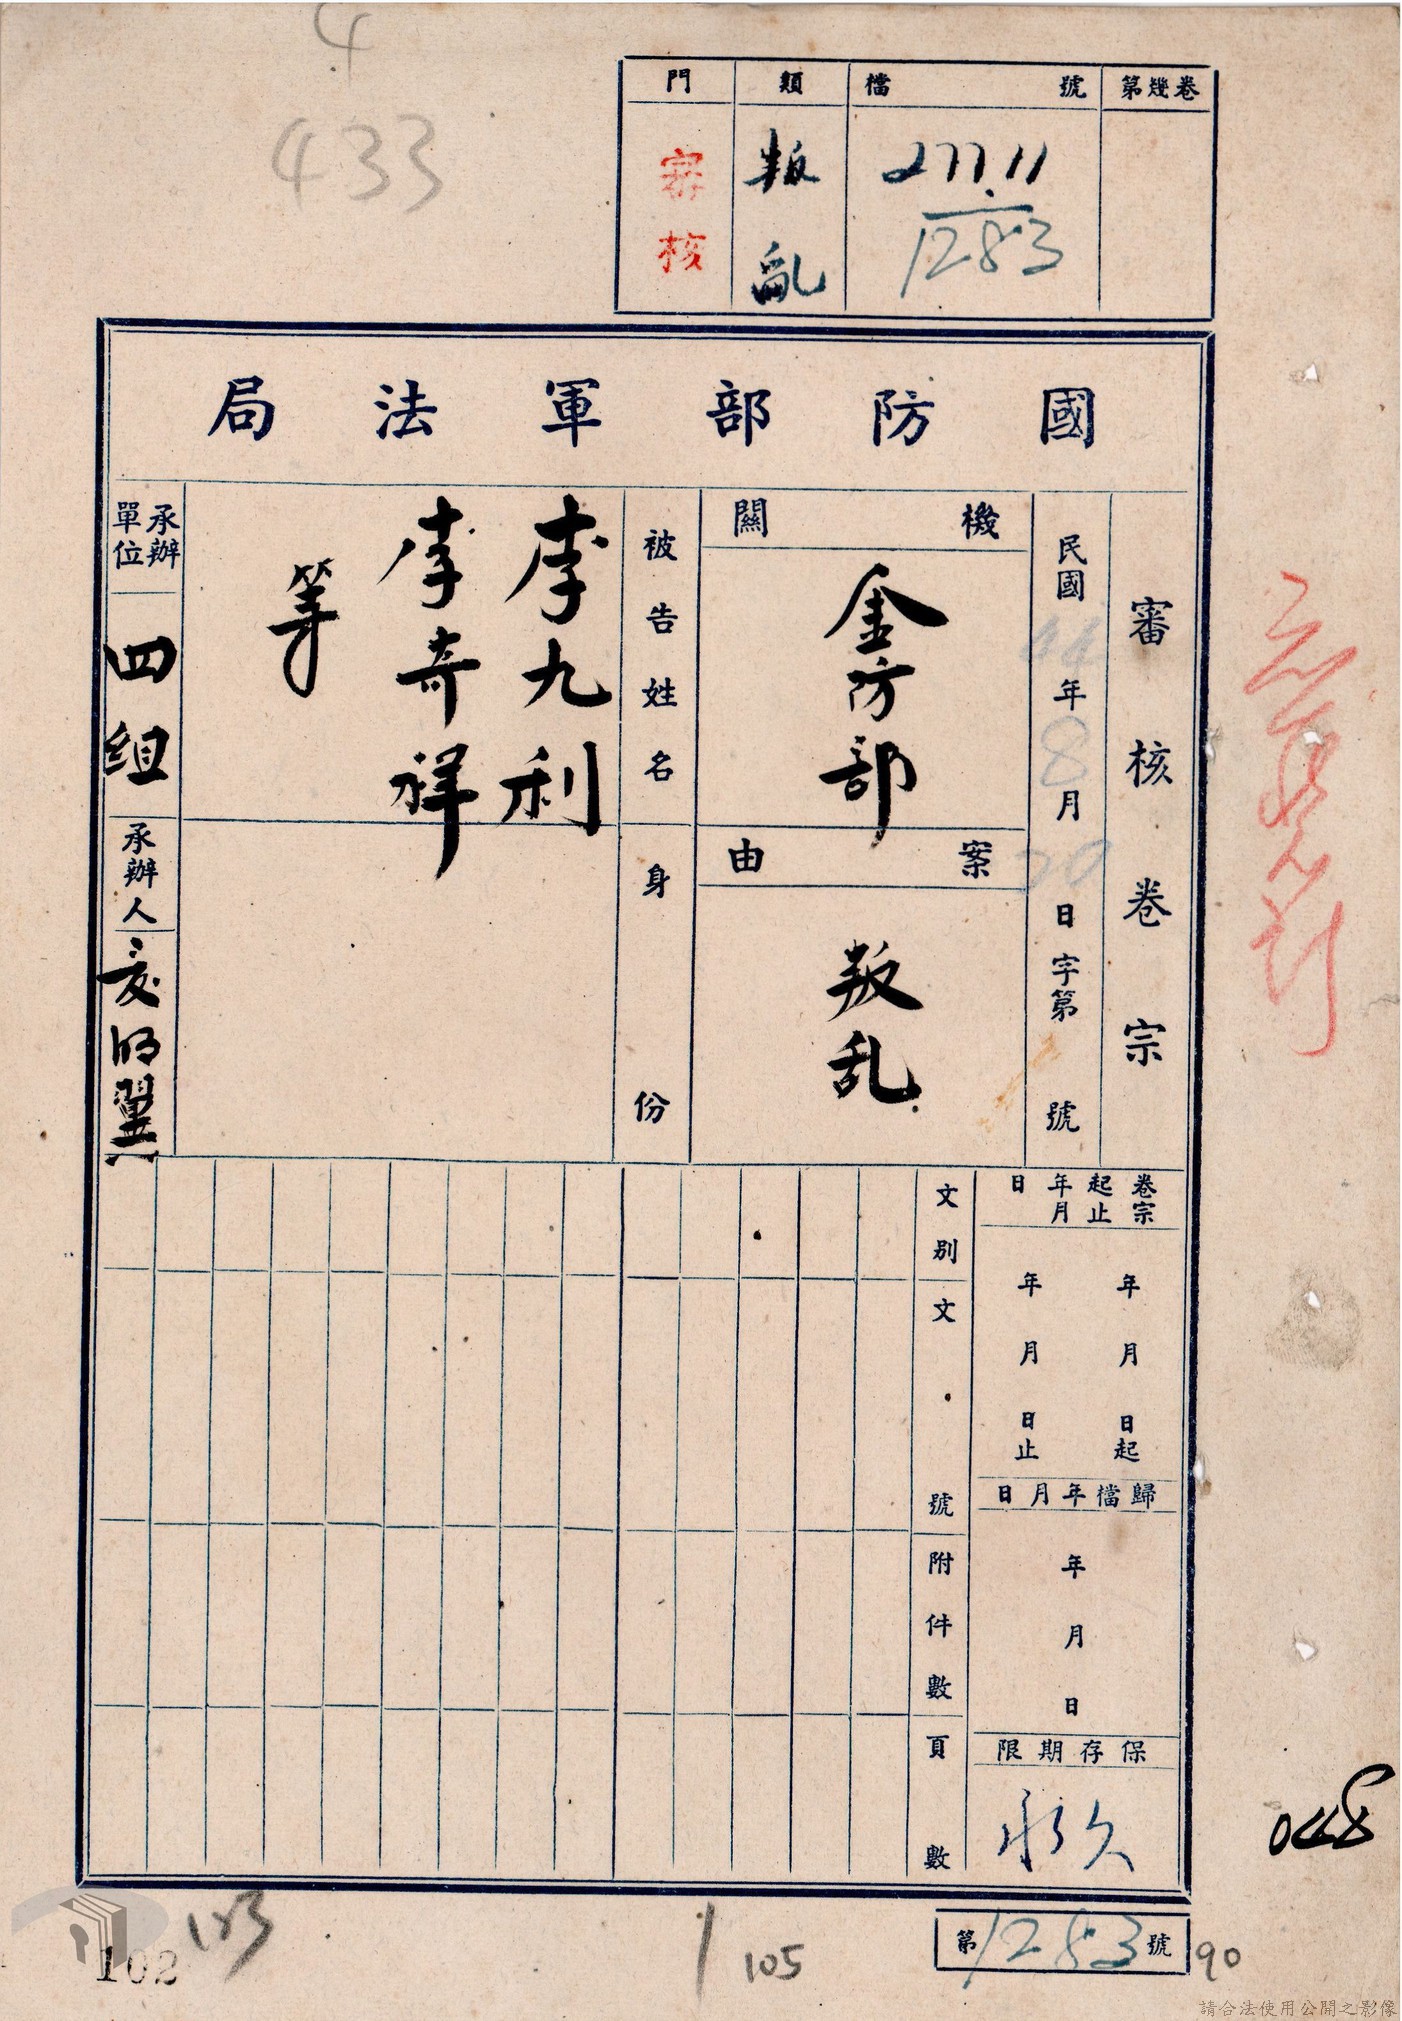 4
433
第幾卷
檔號
277.11
1283
類
叛亂
門
審核
國防部軍法局
審核卷宗
民國44年8月20日字第號
機關
金防部
案由
叛乱
被告姓名
李九利
李奇祥
等
身份
承辦單位
四組
承辦人
卷宗起止年月日
年月日起
年月日止
歸檔年月日
年月日
保存期限
永久
文別
文號
附件數
頁數
048
第1283號
90
105
1
103
102
請合法使用公開之影像